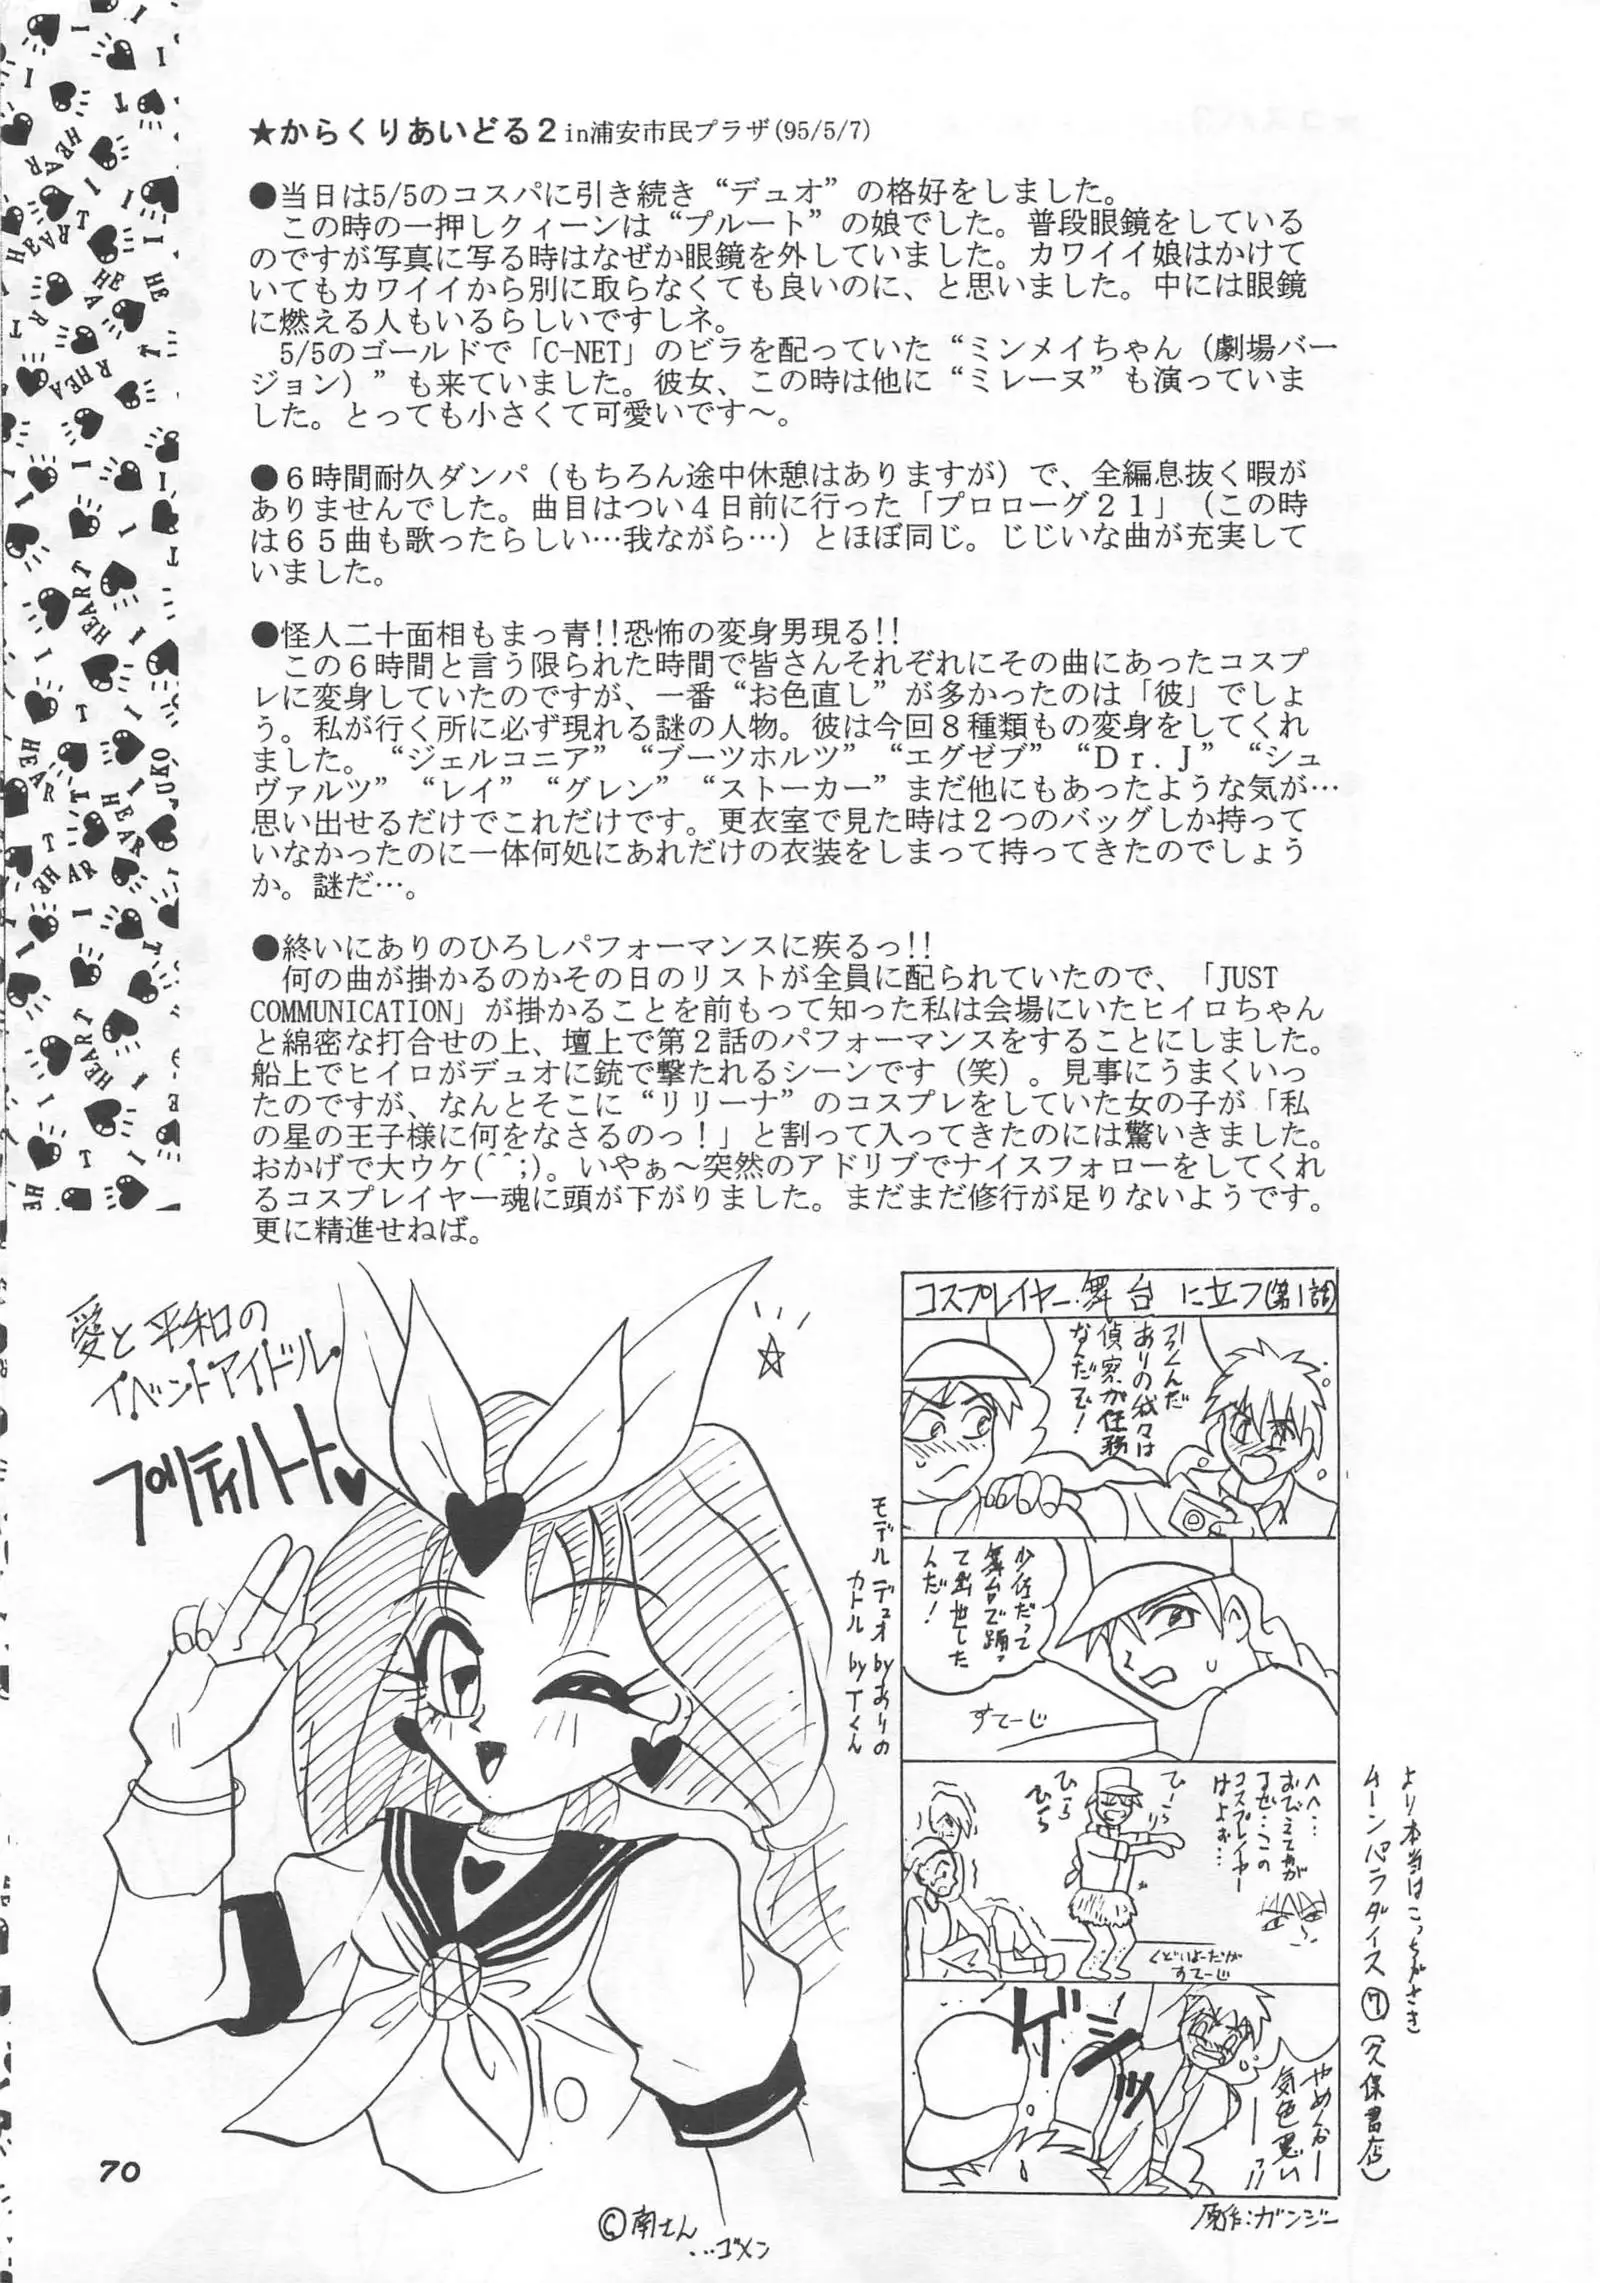 ★からくりあいどる２in浦安市民プラザ(95/5/7)
●当日は5/5のコスパに引き続き“デュオ”の格好をしました。
この時の一押しクィーンは“プルート”の娘でした。普段眼鏡をしている
のですが写真に写る時はなぜか眼鏡を外していました。カワイイ娘はかけて
いてもカワイイから別に取らなくても良いのに、と思いました。中には眼鏡
に燃える人もいるらしいですしネ。
5/5のゴールドで「C-NET」のビラを配っていた“ミンメイちゃん（劇場バー
ジョン）”も来ていました。彼女、この時は他に“ミレーヌ”も演っていま
した。とっても小さくて可愛いです～。
●６時間耐久ダンパ（もちろん途中休憩はありますが）で、全編息抜く暇が
ありませんでした。曲目はつい４日前に行った「プロローグ２１」（この時
は６５曲も歌ったらしい…我ながら…）とほぼ同じ。じじいな曲が充実して
いました。
●怪人二十面相もまっ青!!恐怖の変身男現る!!
この６時間と言う限られた時間で皆さんそれぞれにその曲にあったコスプ
レに変身していたのですが、一番“お色直し”が多かったのは「彼」でしょ
う。私が行く所に必ず現れる謎の人物。彼は今回８種類もの変身をしてくれ
ました。“ジェルコニア”“ブーツホルツ”“エグゼブ”“Ｄｒ.Ｊ”“シュ
ヴァルツ”“レイ”“グレン”“ストーカー”まだ他にもあったような気が…
思い出せるだけでこれだけです。更衣室で見た時は２つのバッグしか持って
いなかったのに一体何処にあれだけの衣装をしまって持ってきたのでしょう
か。謎だ…。
●終いにありのひろしパフォーマンスに疾るっ!!
何の曲が掛かるのかその日のリストが全員に配られていたので、「JUST
COMMUNICATION」が掛かることを前もって知った私は会場にいたヒイロちゃん
と綿密な打合せの上、壇上で第２話のパフォーマンスをすることにしました。
船上でヒイロがデュオに銃で撃たれるシーンです（笑）。見事にうまくいっ
たのですが、なんとそこに“リリーナ”のコスプレをしていた女の子が「私
の星の王子様に何をなさるのっ！」と割って入ってきたのには驚いきました。
おかげで大ウケ(^^;)。いやぁ～突然のアドリブでナイスフォローをしてくれ
るコスプレイヤー魂に頭が下がりました。まだまだ修行が足りないようです。
更に精進せねば。
愛と平和の
イベントアイドル
プリティハート♥
コスプレイヤー舞台に立つ(第1話)
引くんだ
ありの我々は
偵察が任務
なんだぞ！
少佐だって
舞台で踊っ
て出世した
んだ！
すてーじ
モデル デュオ byありの
カトル by Tくん
へへ…
おびえてやが
るぜ…この
コスプレイヤー
はよぉ…
ひーらり
ひーら
ひら
すてーじ
ゲシッ
やめんかー
気色悪い
ーーっ!!
原作:ガンジー
より本当はこっちがさき
ムーンパラダイス⑦(久保書店)
©南さん
…ゴメン
70
I
HEART